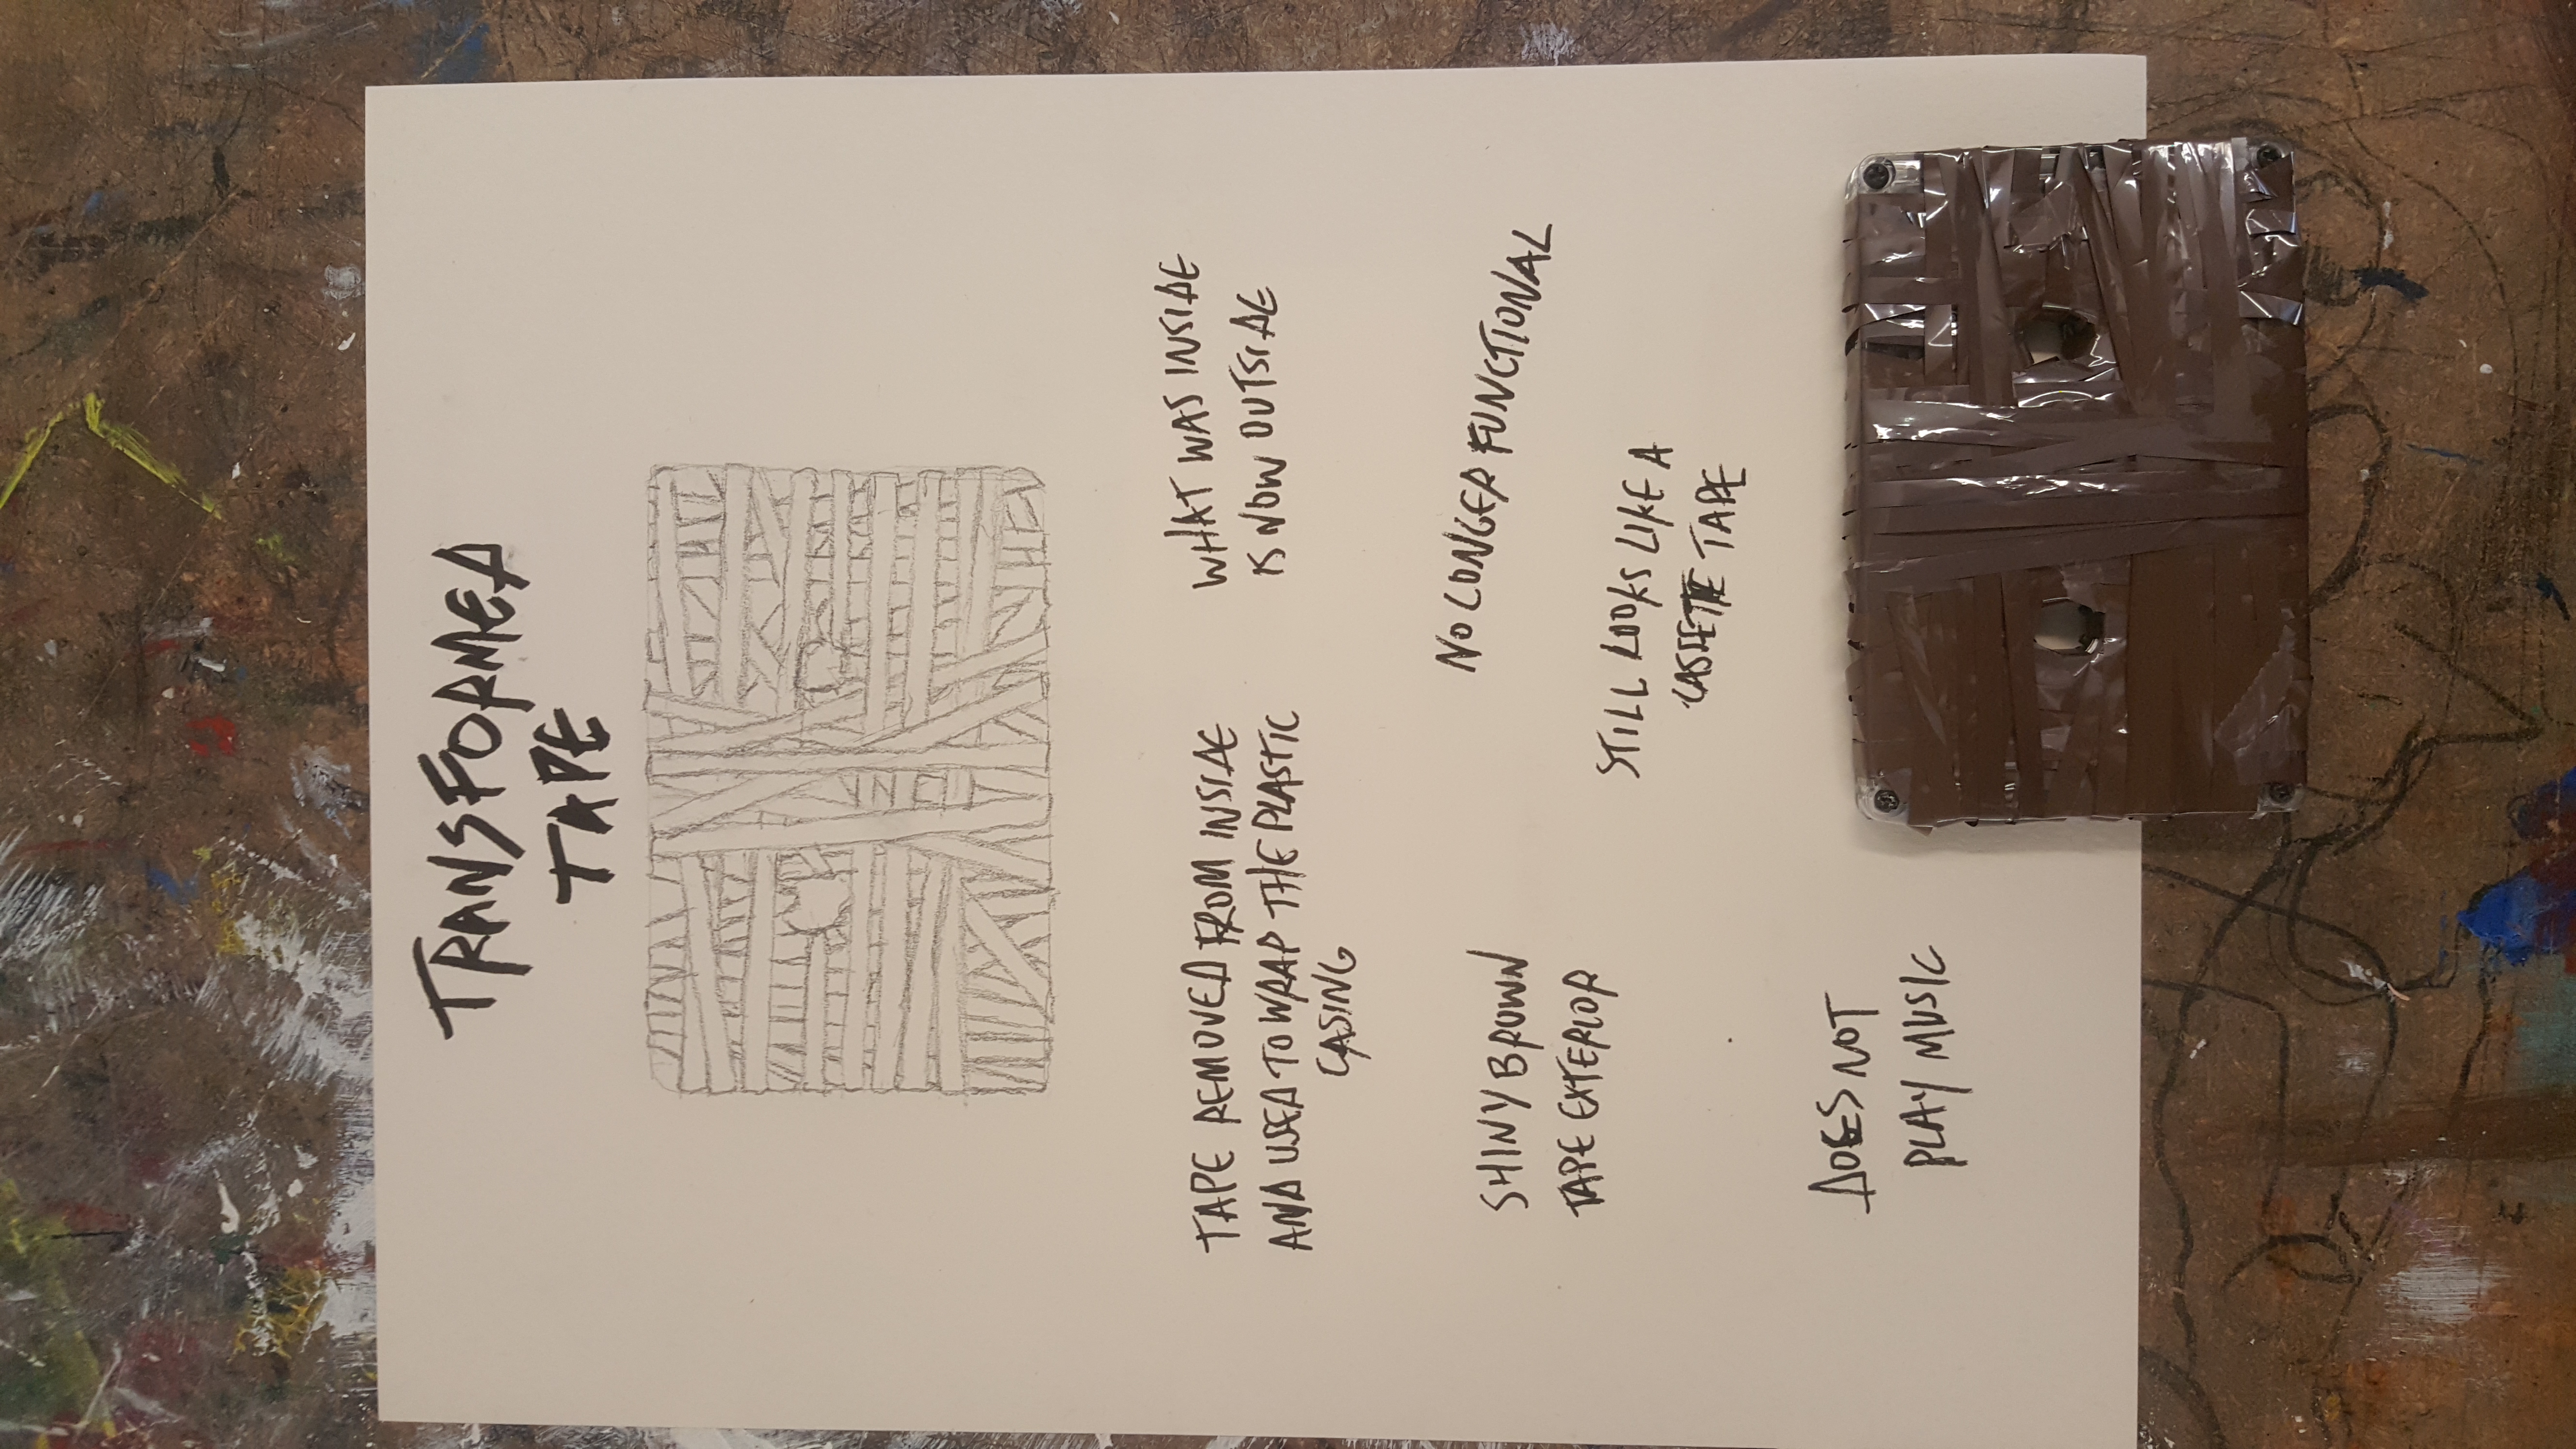 TRANSFORMED
TAPE
TAPE REMOVED FROM INSIDE
AND USED TO WRAP THE PLASTIC
CASING
WHAT WAS INSIDE
IS NOW OUTSIDE
SHINY BROWN
TAPE EXTERIOR
NO LONGER FUNCTIONAL
STILL LOOKS LIKE A
CASSETTE TAPE
DOES NOT
PLAY MUSIC